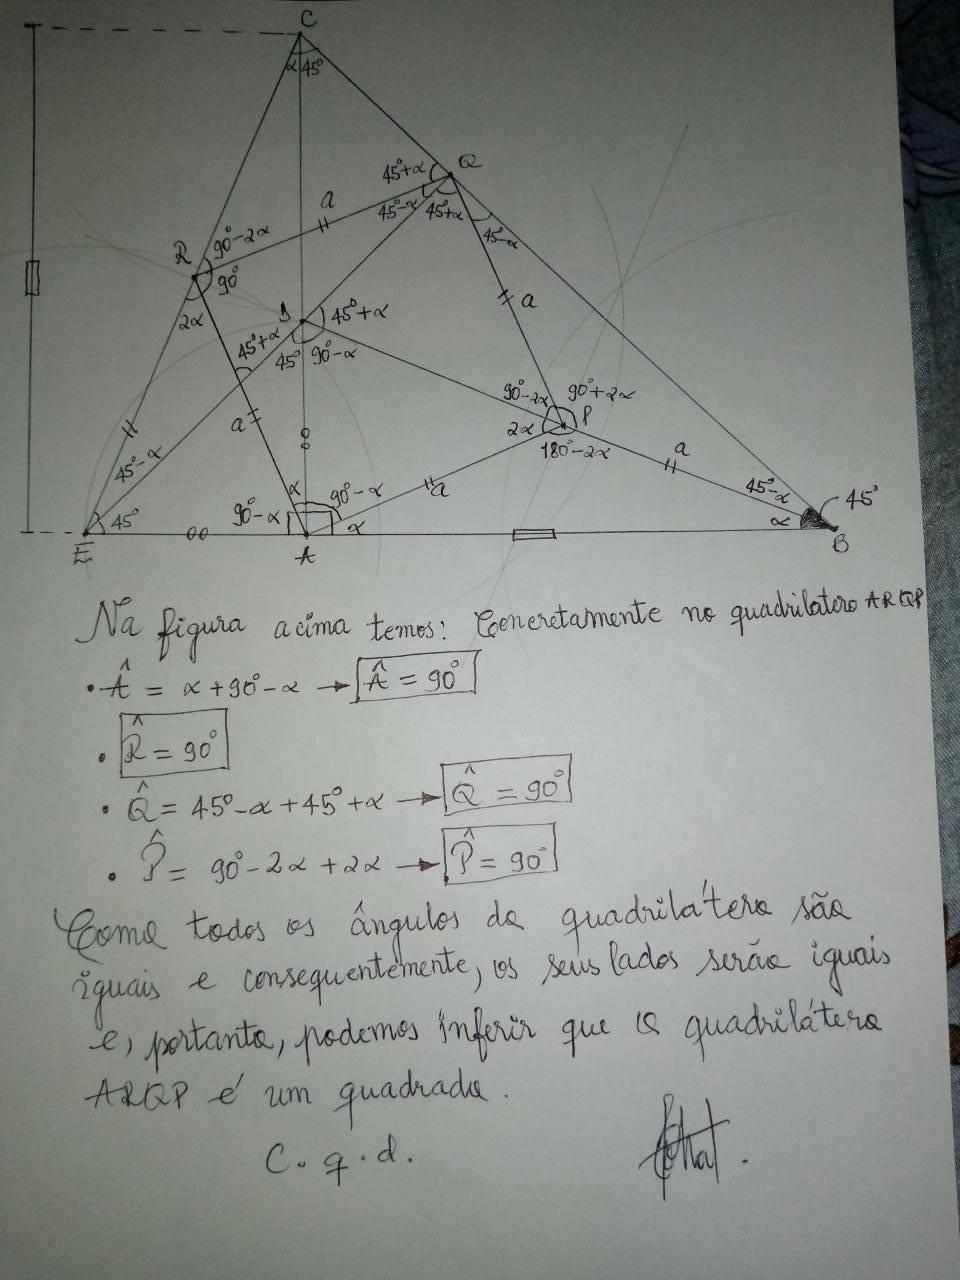 C
α 45°
Q
45°+α
45°-α 45°+α
45°-α
a
R 90°-2α
90°
2α
a
D 45°+α
45°+α
45° 90°-α
90°-2α 90°+2α
2α P
180°-2α
a
a
α
a
90°-α
90°-α
α
45°-α
45°
45°-α
α
45°
E
A
B
Na figura acima temos: Concretamente no quadrilatero ARQP
• Â = α + 90° - α → Â = 90°
• R̂ = 90°
• Q̂ = 45° - α + 45° + α → Q̂ = 90°
• P̂ = 90° - 2α + 2α → P̂ = 90°
Como todos os ângulos do quadrilátero são
iguais e consequentemente, os seus lados serão iguais
e, portanto, podemos inferir que o quadrilátero
ARQP é um quadrado.
C.q.d.